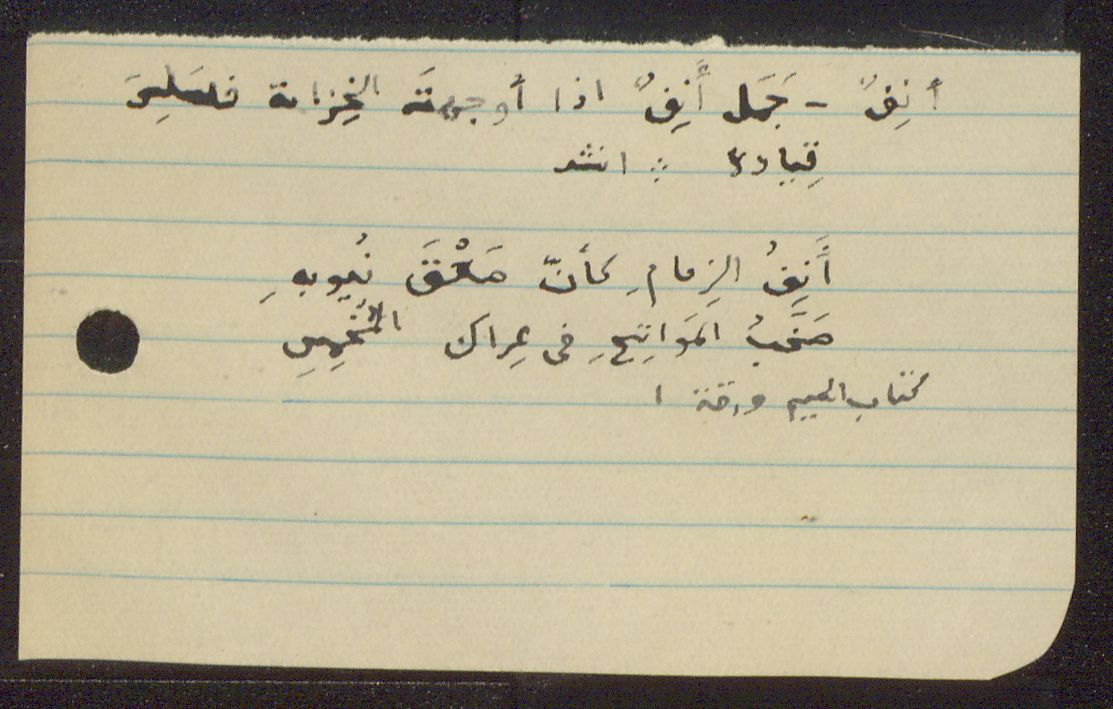 أنِفٌ - جَمَل أَنِفٌ اذا أوجعتَه الخِزامة فسَلِسَ
قِياده ∴ انشد
أَنِفُ الزِمامِ كأنّ صَعْقَ نُيوبهِ
صَخَبُ المَواتِحِ فى عِراك المُخْمِسِ
كتاب الجيم ورقة ١